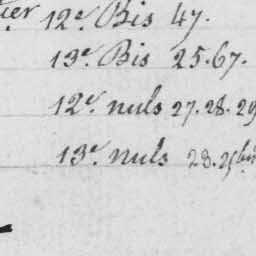 ier 12e Bis 47.
13e Bis 25.67.
12e nuls 27.28.29
13e nuls 28.29bis